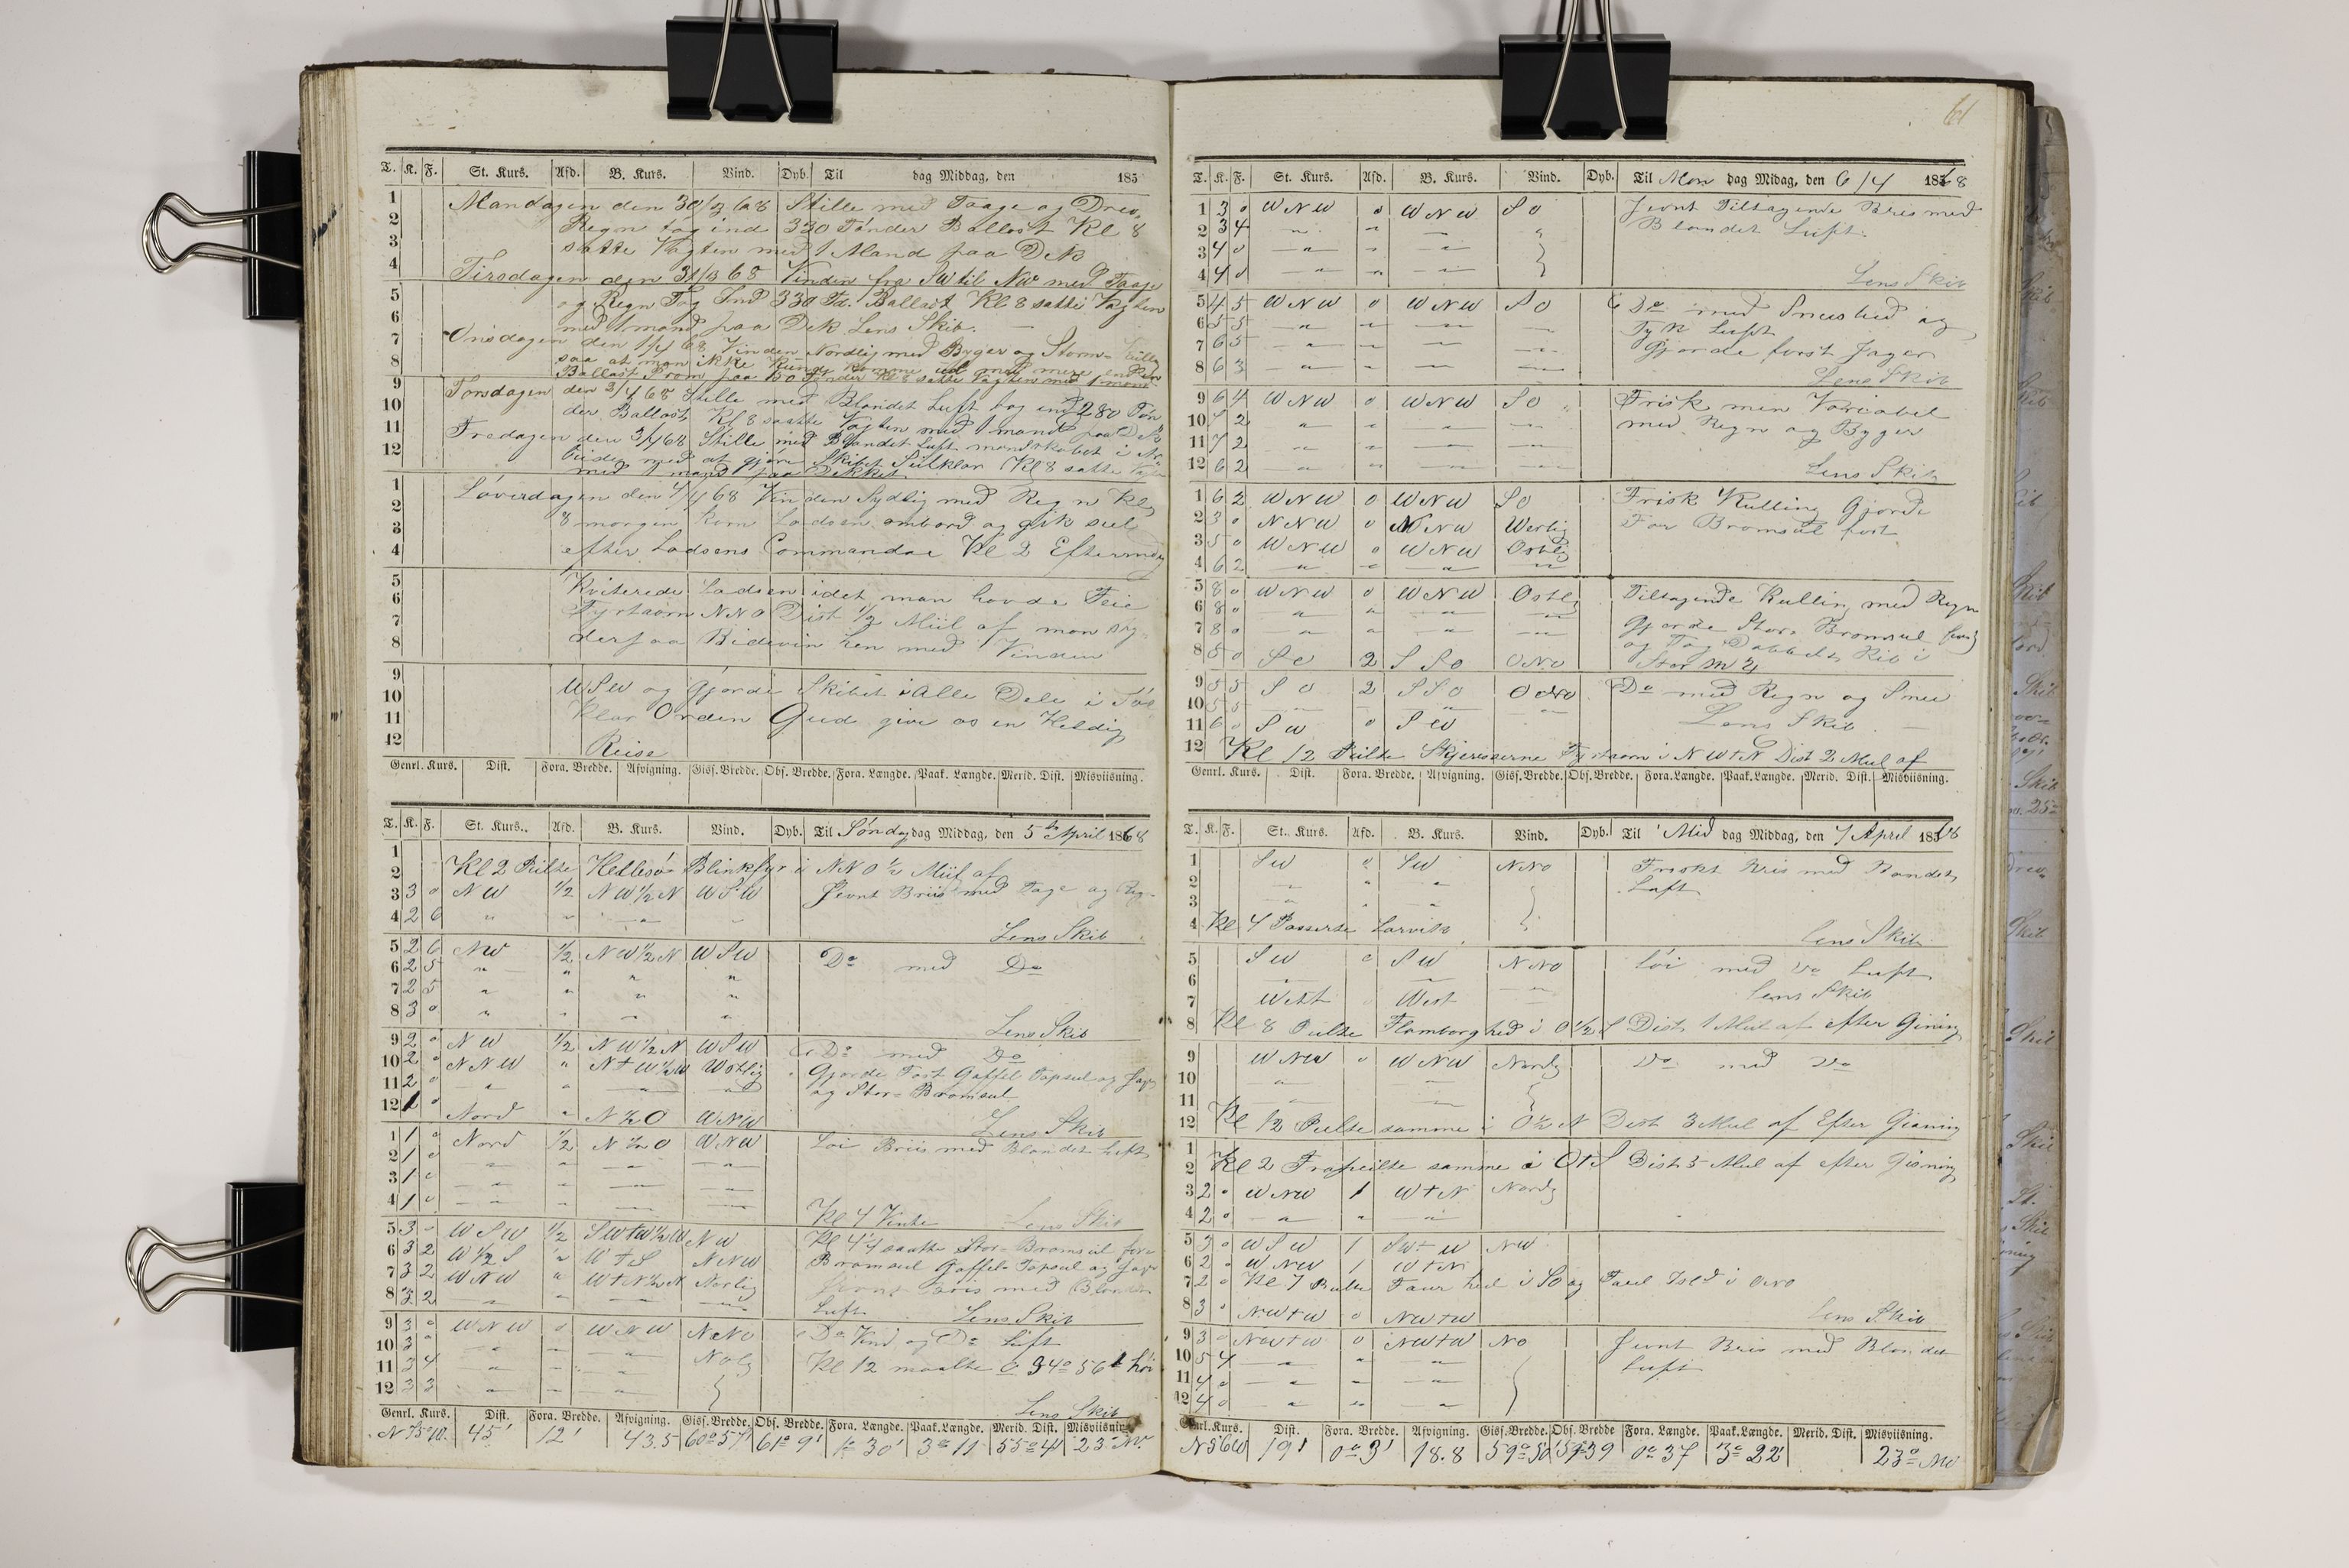 T. K. F. St. Kurs. Afd. B. Kurs. Vind. Dyb. Til dag Middag, den 185
1 Mandagen den 30/3 68 Stille med Taage og
2 Regn tog ind 330 Tønder Ballast Kl 8
3 satte Vagten med 1 Mand paa Dek
4 Tirsdagen den 31/3 68 Vinden fra SW til NW med Taage
5 og Regn Tog Ind 330 Td. Ballast Kl 8 satte Vagten
6 med 1 mand paa Dek Lens Skib.
7 Onsdagen den 1/4 68 Vinden Nordlig med Byger og Storm
8 saa at man ikke Kunde komme ud med mere end En
Ballast Pram paa 150 Tønder Kl 8 satte Vagten med 1 mand
9 Torsdagen den 2/4 68 Stille med Blandet Luft tog ind 280 Tøn
10 der Ballast, Kl 8 satte Vagten med 1 mand paa Dek
11 Fredagen den 3/4 68 Stille med Blandet Luft mandskabet i Ar
12 beide med at gjøre Skibet Seilklar Kl 8 satte Vagten
med 1 mand paa Dekket
1 Løverdagen den 4/4 68 Vinden Sydlig med Regn Kl
2 8 morgen kom Lodsen ombord og gik seil
3 efter Lodsens Commandoe Kl 2 Eftermdg
4
5 Kviterede Lodsen idet man havde Feie
6 Fyrtaarn NNO Dist 1/2 Miil af man
7 derpaa Bidevin hen med Vinden
8
9 WSW og Gjorde Skibet i Alle Dele i Søe
10 Klar Orden Gud give os en Heldig
11 Reise
12
Genrl. Kurs. Dist. Fora. Bredde. Afvigning. Gisf. Bredde. Obs. Bredde. Fora. Længde. Paak. Længde. Merid. Dist. Misviisning.
T. K. F. St. Kurs. Afd. B. Kurs. Vind. Dyb. Til Søndag dag Middag, den 5te April 1868
1
2 Kl 2 Peilte Hellesø Blinkfyr i NNO 1/2 Miil af
3 3 0 NW 1/2 NW 1/2 N WSW Jevnt Briis med Tage og Reg
4 2 6 " " " "
Lens Skib
5 2 6 NW 1/2 NW 1/2 N WSW Do med Do
6 2 5 " " " "
7 2 5 " " " "
8 3 0 " " " " Lens Skib
9 2 0 NW 1/2 NW 1/2 N WSW Do med Do
10 2 0 NNW " Gjorde Fast Gaffel Topseil og
11 2 0 " " " " og Stor- Bramseil
12 1 0 Nord " N 1/2 O WNW Lens Skib
1 1 0 Nord 1/2 N 1/2 O WNW Løi Briis med Blandet Luft
2 1 0 " " " "
3 1 0 " " " "
4 1 0 " " " " Kl 4 Vinte Lens Skib
5 3 WSW 1/2 NW
6 3 2 W 1/2 S " W t S NNW Bramseil Gaffel- Topseil og
7 3 2 WNW " W t N 1/2 N Norlig Briis med Blandet
8 3 2 " " " " Luft Lens Skib
9 3 0 WNW 0 WNW NNO Do Vind og Do Luft
10 3 0 " " "
11 3 4 " " " Kl 12 maalte 34° 56' høi
12 3 3 " " "
Lens Skib
Genrl. Kurs. Dist. Fora. Bredde. Afvigning. Gisf. Bredde. Obs. Bredde. Fora. Længde. Paak. Længde. Merid. Dist. Misviisning.
45' 12' 43.5 60° 57' 61° 9' 1° 30' 3° 11 55° 41 23 NW.
61
T. K. F. St. Kurs. Afd. B. Kurs. Vind. Dyb. Til Man dag Midag, den 6/4 1868
1 3 0 WNW 0 WNW SO Jevnt Tiltagende Bris med
2 3 4 " " " " Blandet Luft.
3 4 0 " " "
4 4 0 " " " Lens Skib
5 4 5 WNW 0 WNW SO Do med Snee og
6 5 5 " " " " Tyk Luft
7 6 5 " " " " Gjorde fast Jager
8 6 3 " " " " Lens Skib
9 6 4 WNW 0 WNW SO Frisk men Variabel
10 2 " " " " med Regn og Byger
11 7 2 " " " "
12 6 2 " " " " Lens Skib
1 6 2 WNW 0 WNW SO Frisk Kulling Gjorde
2 3 0 NNW 0 NNW Westlig For Bramseil fast
3 5 0 WNW 0 WNW Ostlig
4 6 2 " " " "
5 8 0 WNW 0 WNW Ostl Tiltagende Kulling med Regn
6 8 0 " " " " Gjorde Stor- Bramseil fast
7 8 0 " " " " og Tog Dobbelt Reb i
8 5 0 SO 2 SSO ONO
9 5 5 SO 2 SSO ONO Do med Regn og Snee
10 5 5 " " " Lens Skib
11 6 0 SW 0 SW
12 Kl 12 Peilte Fyrtaarn i NWtN Dist 2 Miil af
Genrl. Kurs. Dist. Fora. Bredde. Afvigning. Gisf. Bredde. Obs. Bredde. Fora. Længde. Paak. Længde. Merid. Dist. Misviisning.
T. K. F. St. Kurs. Afd. B. Kurs. Vind. Dyb. Til Mid dag Middag, den 7 April
1 SW " SW NNO Friskt Bris med Blandet
2 " " " Luft
3 " " "
4 Kl 4 Passerte Larvik Lens Skib
5 SW 0 SW NNO Løi med Do Luft
6 " " " Lens Skib
7 West West "
8 Kl 8 Peilte Flamborg hed i O 1/2 S Dist 1 Miil af efter Gisning
9 WNW 0 WNW Nordlg Do med Do
10 " "
11 " "
12 Kl 12 Peilte samme i O 1/2 N Dist 3 Miil af Efter Gisning
1
2 Kl 2 Frapeilte samme i OtS Dist 5 Miil af efter Gisning
3 2 0 WNW 1 WtN Nordlg
4 2 0 " " "
5 3 0 WSW 1 SWtW NW
6 2 0 WNW 1 WtN
7 2 0 Kl 7 Peilte i SO og i ONO
8 3 0 NWtW 0 NWtW Lens Skib
9 3 0 NWtW 0 NWtW NO Jevnt Bris med Blandet
10 5 4 " " " Luft
11 4 0 " " "
12 4 0 " " "
Genrl. Kurs. Dist. Fora. Bredde. Afvigning. Gisf. Bredde. Obs. Bredde Fora. Længde. Paak. Længde. Merid. Dist. Misviisning.
N 56 W 19' 0° 3' 18.8 59° 50' 59° 39 0° 37 3° 22' 23° NW